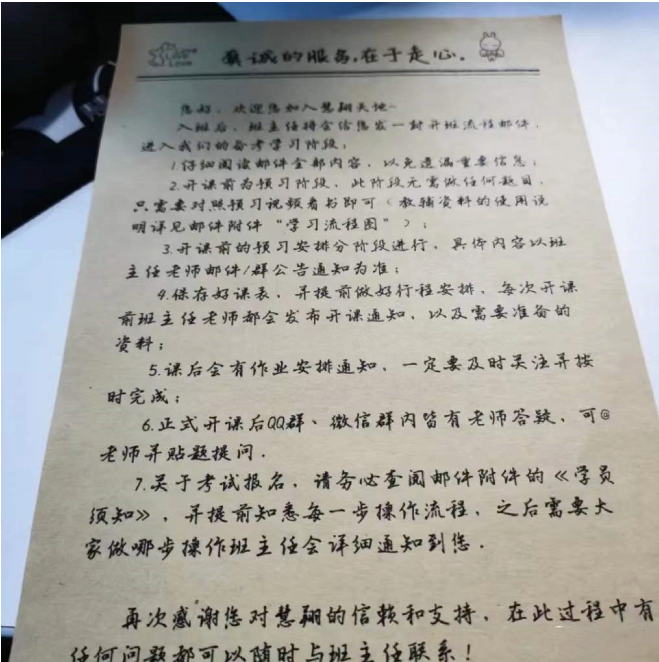 Love
Love
真诚的服务,在于走心.
您好,欢迎您加入慧翔天地~
入班后,班主任将会给您发一封开班流程邮件,
进入我们的备考学习阶段;
1.仔细阅读邮件全部内容,以免遗漏重要信息;
2.开课前为预习阶段,此阶段无需做任何题目,
只需要对照预习视频看书即可(教辅资料的使用说
明详见邮件附件“学习流程图”);
3.开课前的预习安排分阶段进行,具体内容以班
主任老师邮件/群公告通知为准;
4.保存好课表,并提前做好行程安排,每次开课
前班主任老师都会发布开课通知,以及需要准备的
资料;
5.课后会有作业安排通知,一定要及时关注并按
时完成;
6.正式开课后QQ群、微信群内皆有老师答疑,可@
老师并贴题提问.
7.关于考试报名,请务必查阅邮件附件的《学员
须知》,并提前知悉每一步操作流程,之后需要大
家做哪步操作班主任会详细通知到您.
再次感谢您对慧翔的信赖和支持,在此过程中有
任何问题都可以随时与班主任联系!